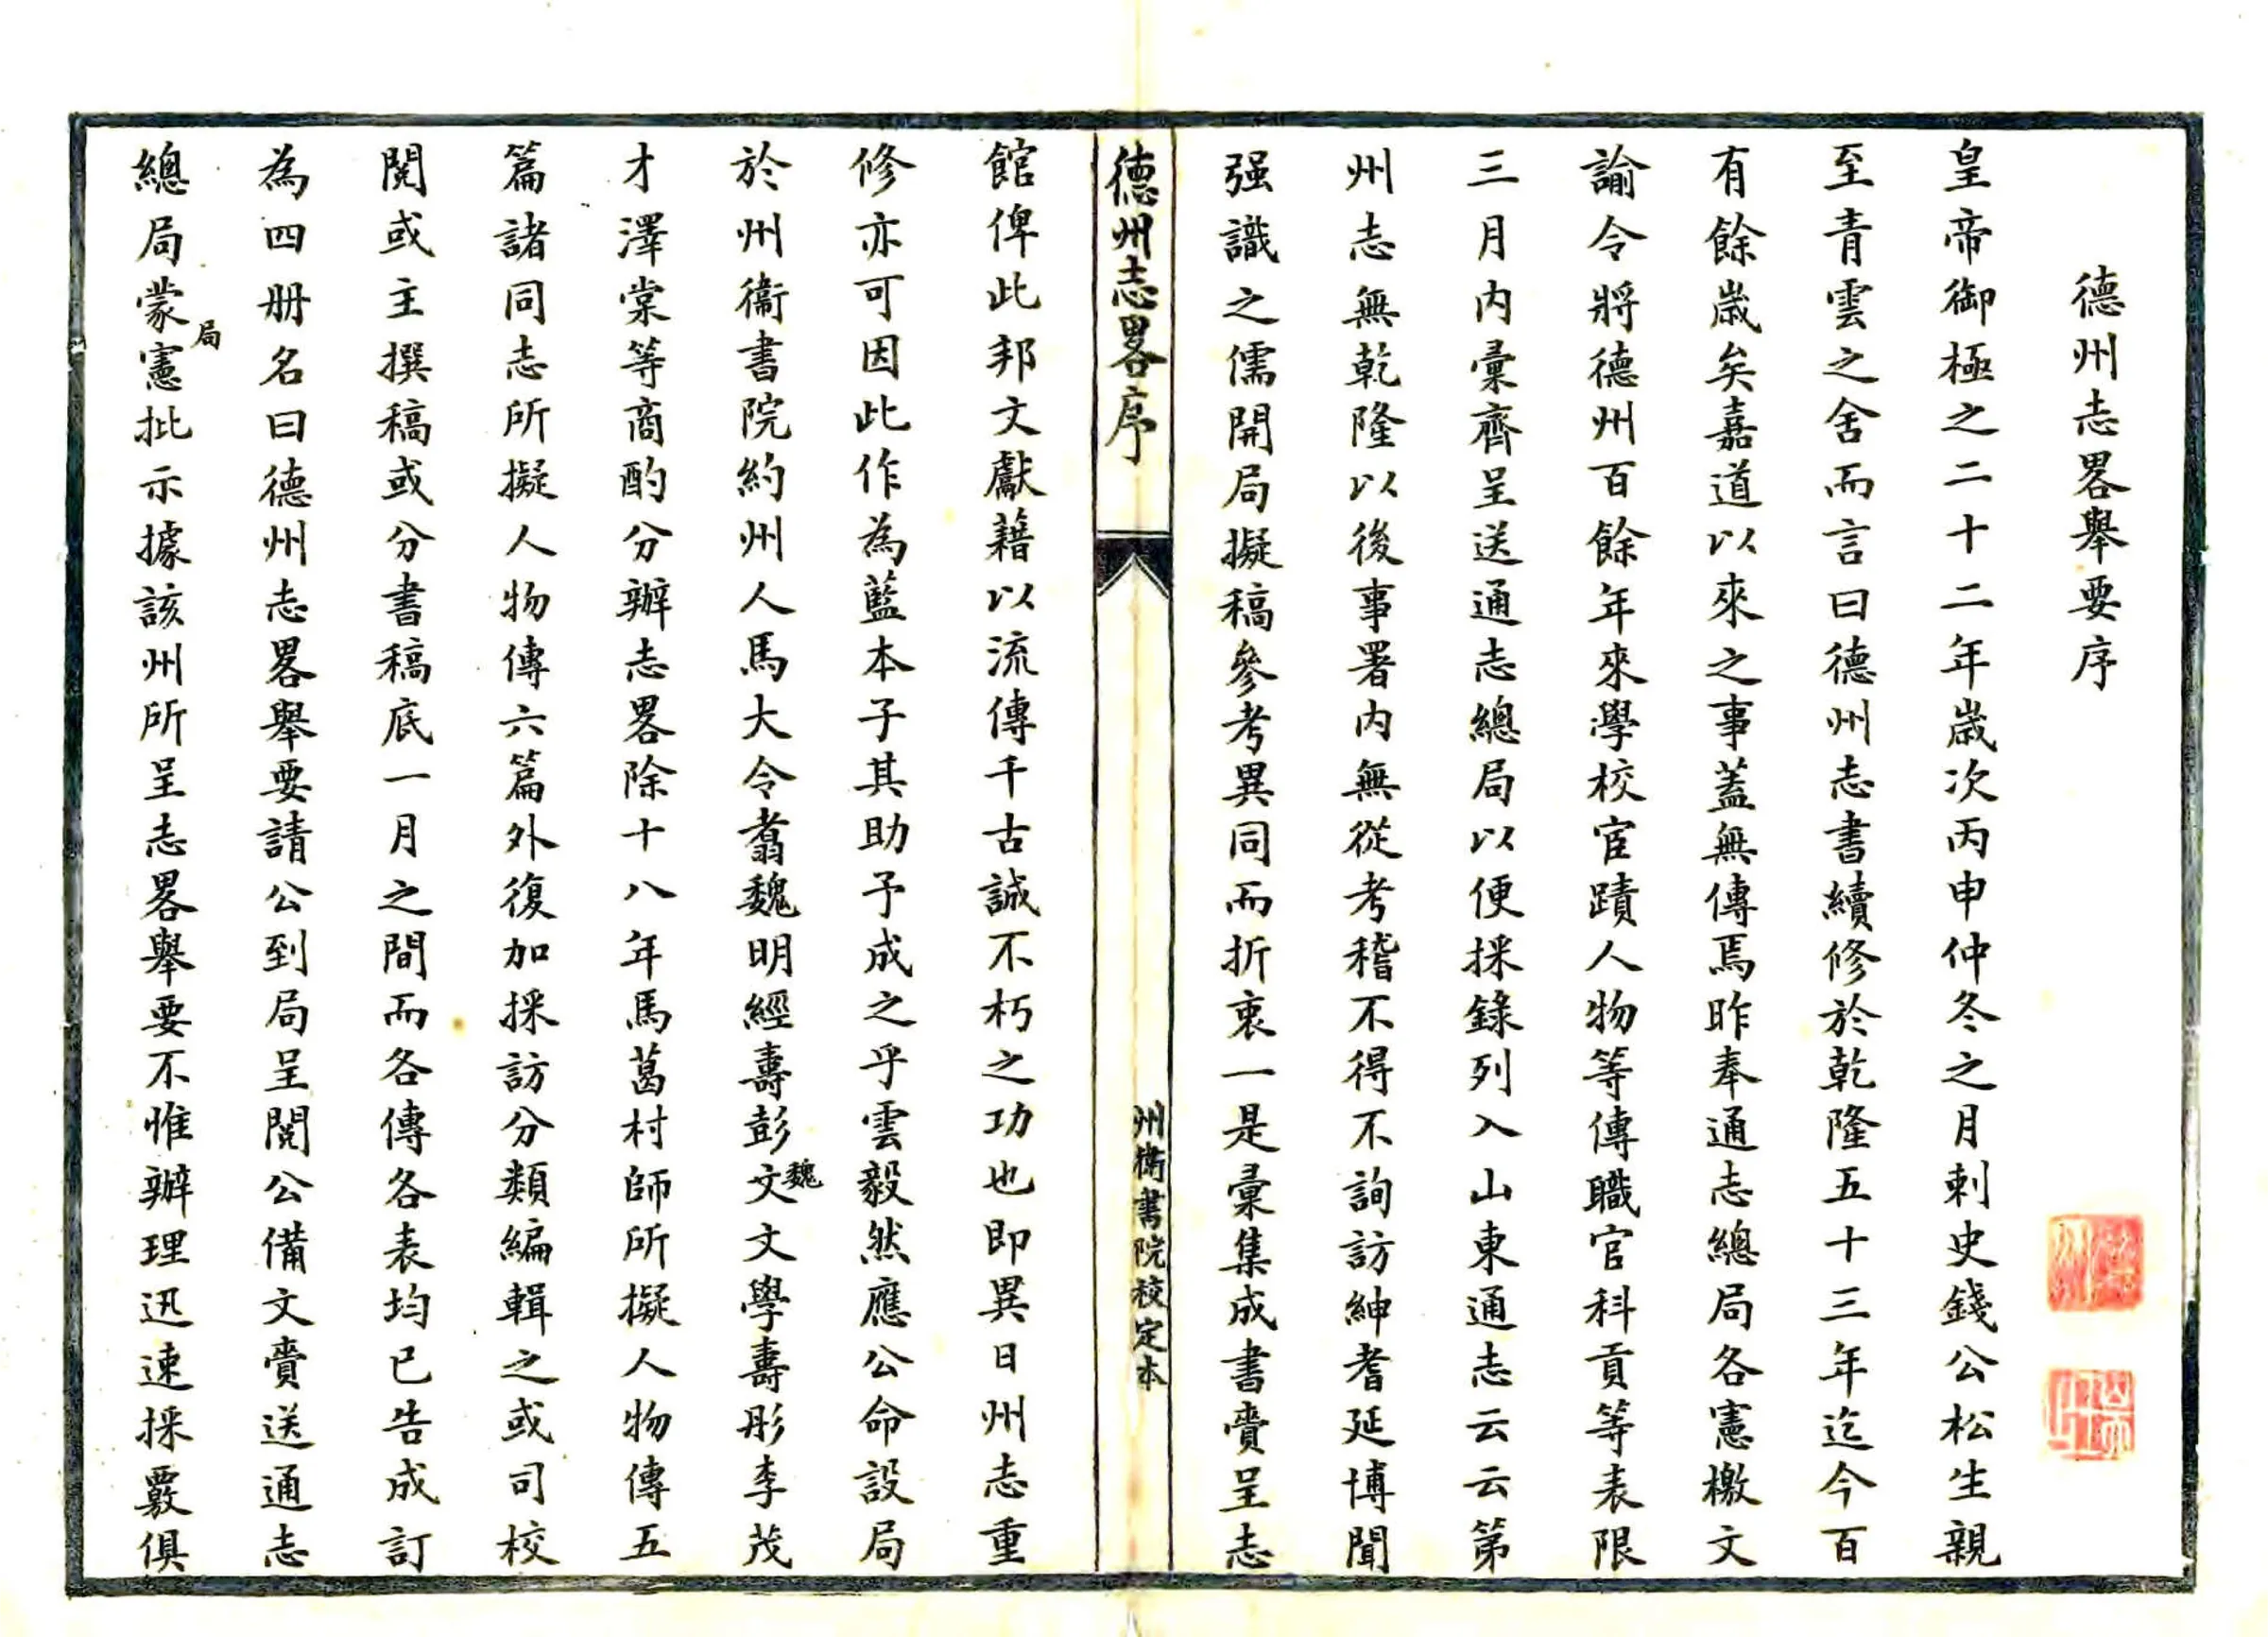 德州志畧舉要序
皇帝御極之二十二年歲次丙申仲冬之月刺史錢公松生親
至青雲之舍而言曰德州志書續修於乾隆五十三年迄今百
有餘歲矣嘉道以來之事蓋無傳焉昨奉通志總局各憲檄文
諭令將德州百餘年來學校宦蹟人物等傳職官科貢等表限
三月內彙齊呈送通志總局以便採錄列入山東通志云云第
州志無乾隆以後事署內無從考稽不得不詢訪紳耆延博聞
强識之儒開局擬稿參考異同而折衷一是彙集成書賫呈志
德州志畧序
州衞書院校定本
館俾此邦文獻藉以流傳千古誠不朽之功也即異日州志重
修亦可因此作為藍本子其助予成之乎雲毅然應公命設局
於州衞書院約州人馬大令翥魏明經壽彭魏文文學壽彤李茂
才澤棠等商酌分辦志畧除十八年馬葛村師所擬人物傳五
篇諸同志所擬人物傳六篇外復加採訪分類編輯之或司校
閱或主撰稿或分書稿底一月之間而各傳各表均已告成訂
為四册名曰德州志畧舉要請公到局呈閱公備文賫送通志
總局蒙局憲批示據該州所呈志畧舉要不惟辦理迅速採覈俱